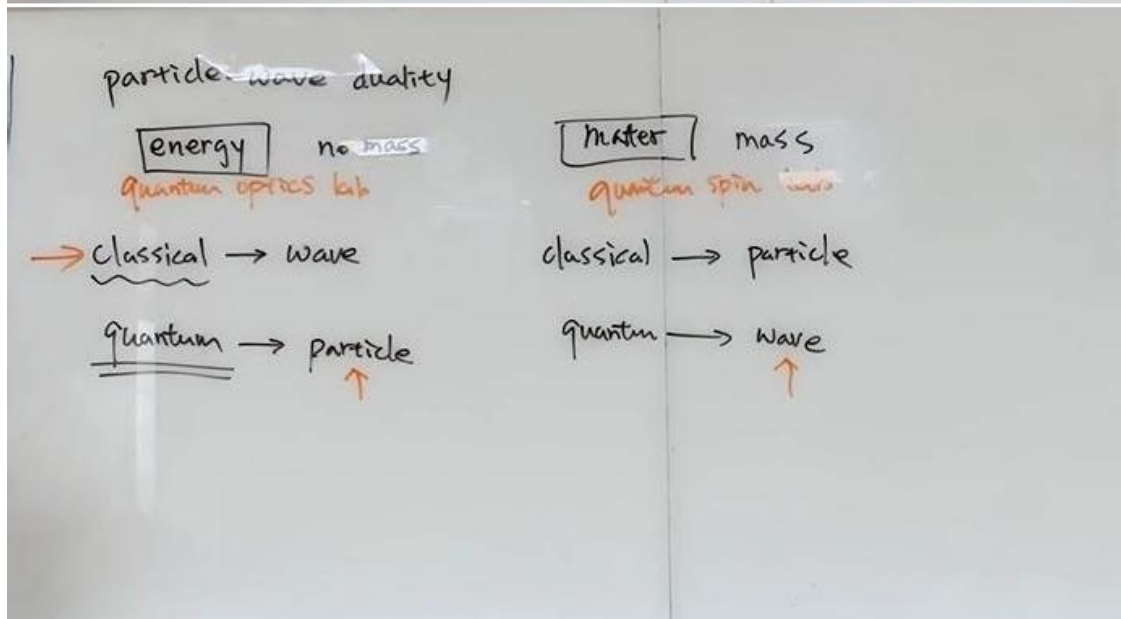 particle-wave duality
energy no mass
quantum optics lab
→ classical → wave
quantum → particle
↑
mater mass
quantum spin
classical → particle
quantum → wave
↑